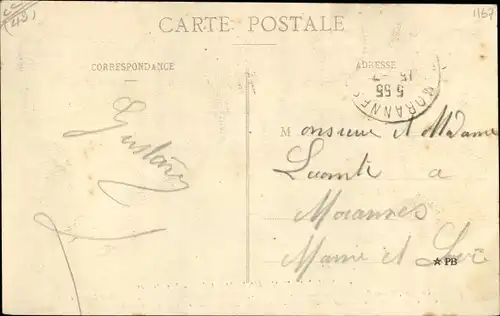 (49)
1167
CARTE POSTALE
CORRESPONDANCE
ADRESSE
MORANNES
15 -7
5 55
Gustave
Monsieur et Madame
Lecomte a
Morannes
Maine et Loire
★ PB